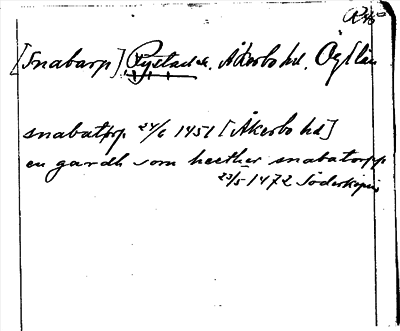 [Snabarp] Rystad sn. Åkerbo hd. Ög län
snabatorp 24/6 1451 [Åkerbo hd]
en gardh som heether snabatorpp
23/5 1472 Söderköping